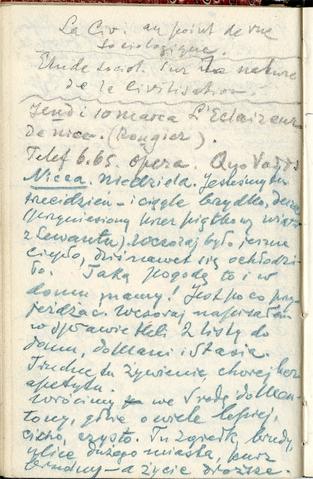 La Civ. au point de vue
sociologique.
Etude sociol. sur la nature
de la civilisation.
Jeudi 10 marca L'Eclaireur
de Nice. (Rougier).
Telef 6.65. Opera. Quo Vadis
Nicea. Niedziela. Jesteśmy tu
trzeci dzień – i ciągle brzydko, deszcz
(przyniesiony przez piątkowy wiatr
z Lewantu). Wczoraj było jeszcze
ciepło, dziś nawet się ochłodzi-
ło. Taką pogodę to i w
domu mamy! Jest po co przy-
jeżdżać. Wczoraj napisałam
w sprawie Heli 2 listy do
domu, do Mani i Stasia.
Trudne tu żywienie chorej bez
apetytu.
Wrócimy we środę do Men-
tony, gdzie o wiele lepiej,
cicho, czysto. Tu zgiełk, brudy,
ulice dużego miasta, kurz
brudny – a życie droższe.